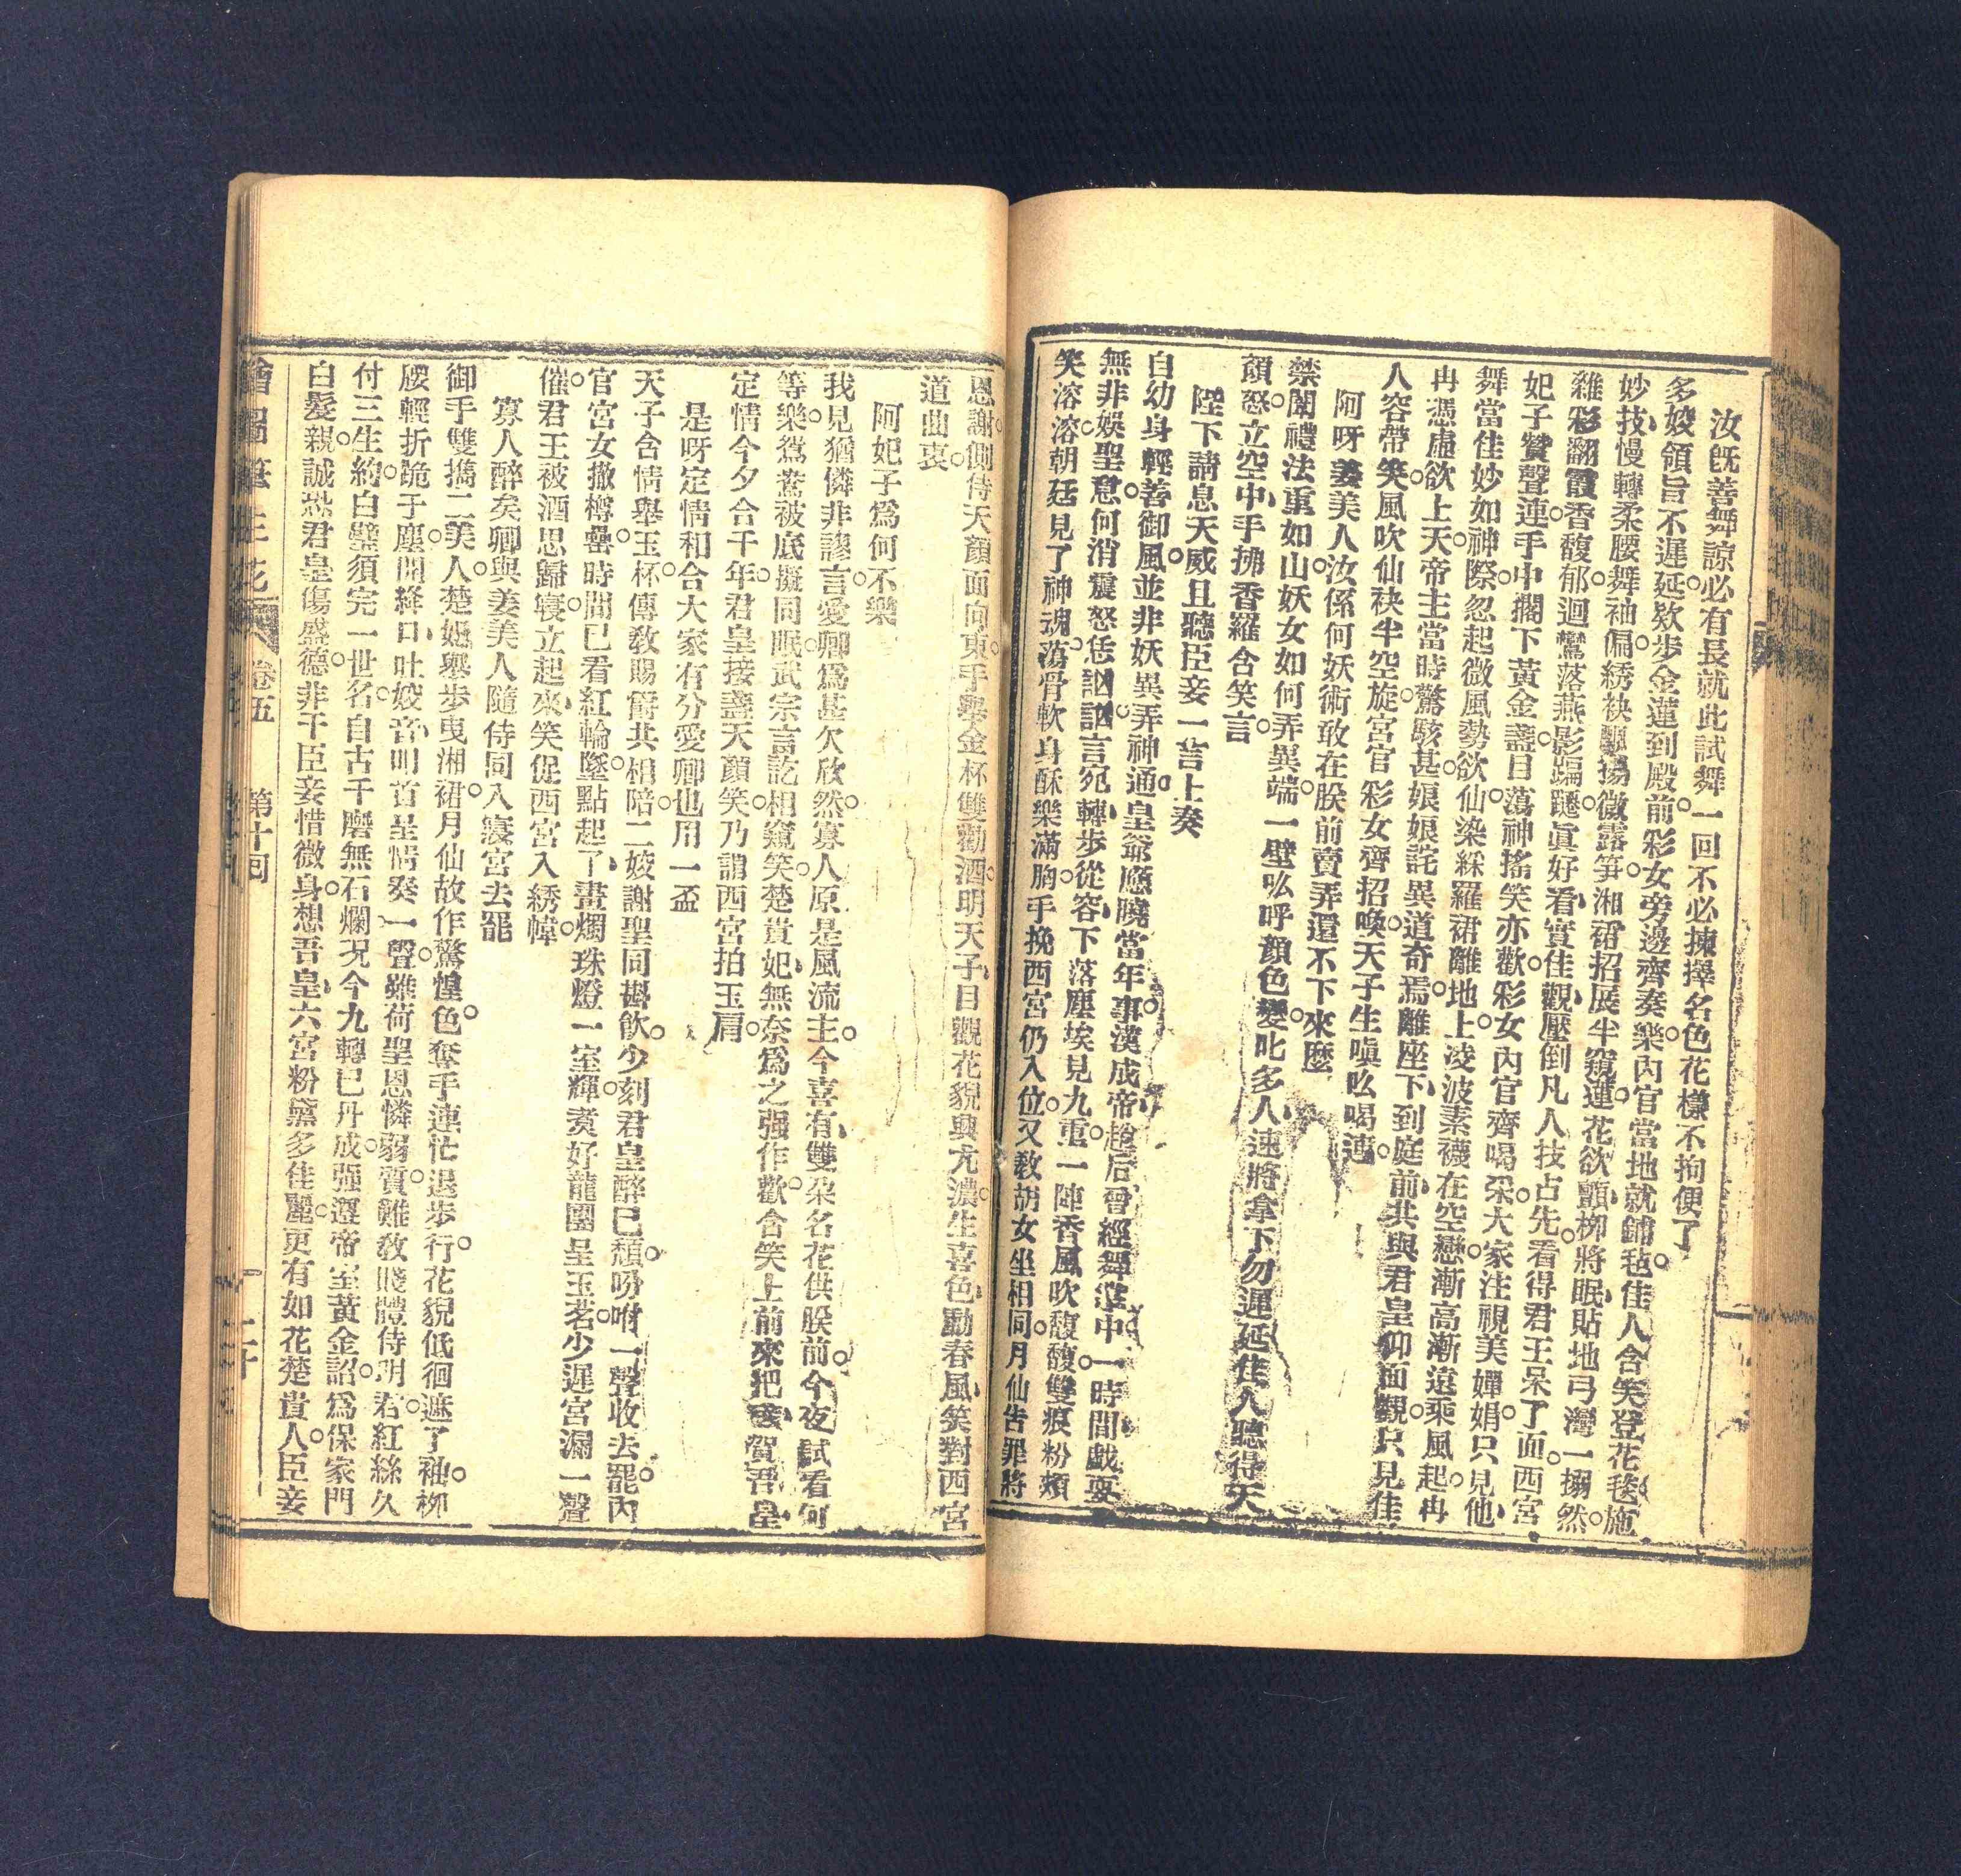 汝旣善舞諒必有長就此試舞一回不必揀擇名色花樣不拘便了
多姣領旨不遲延欵步金蓮到殿前彩女旁邊齊奏樂內官當地就鋪毡佳人含笑登花毯施
妙技慢轉柔腰舞袖偏綉袂飄揚微露笋湘裙招展半窺蓮花欲顫柳將眠貼地弓灣一搦然
雜彩翻霞香馥郁迴鸞落燕影蹁躚眞好看實佳觀壓倒凡人技占先看得君王呆了面西宮
妃子贊聲連手中擱下黃金盞目蕩神搖笑亦歡彩女內官齊喝采大家注視美嬋娟只見他
舞當佳妙如神際忽起微風勢欲仙染綵羅裙離地上凌波素襪在空懸漸高漸遠乘風起冉
冉憑虛欲上天帝主當時驚駭甚娘娘詫異道奇焉離座下到庭前共與君皇仰面觀只見佳
人容帶笑風吹仙袂半空旋宮官彩女齊招喚天子生嗔吆喝連
阿呀姜美人汝係何妖術敢在朕前賣弄還不下來麼
禁闈禮法重如山妖女如何弄異端一壁吆呼顏色變叱多人速將拿下勿遲延佳人聽得天
顏怒立空中手拂香羅含笑言
陛下請息天威且聽臣妾一言上奏
自幼身輕善御風並非妖異弄神通皇爺應曉當年事漢成帝趙后曾經舞掌中一時間戲耍
無非娛聖意何消震怒恁詾詾言宛轉步從容下落塵埃見九重一陣香風吹馥馥雙痕粉頰
笑溶溶朝廷見了神魂蕩骨軟身酥樂滿胸手挽西宮仍入位又敎胡女坐相同月仙告罪將
恩謝側侍天顏面向東手舉金杯雙勸酒明天子目觀花貌興尤濃生喜色動春風笑對西宮
道曲衷
阿妃子爲何不樂
我見猶憐非謬言愛卿爲甚欠欣然寡人原是風流主今喜有雙朶名花供朕前今夜試看何
等樂鴛鴦被底擬同眠武宗言訖相窺笑楚貴妃無奈爲之强作歡含笑上前來把盞賀吾皇
定情今夕合千年君皇接盞天顏笑乃謂西宮拍玉肩
是呀定情和合大家有分愛卿也用一盃
天子含情舉玉杯傳敎賜爵共相陪二姣謝聖同斟飮少刻君皇醉已頹吩咐一聲收去罷內
官宮女撤樽罍時間已看紅輪墜點起了畫燭珠燈一室輝煑好龍團呈玉茗少遲宮漏一聲
催君王被酒思歸寢立起來笑促西宮入綉幃
寡人醉矣卿與姜美人隨侍同入寢宮去罷
御手雙擕二美人楚娥舉步曳湘裙月仙故作驚惶色奪手連忙退步行花貌低徊遮了袖柳
腰輕折跪于塵開絳口吐姣音叩首呈情奏一聲雖荷聖恩憐弱質難敎賤體侍明君紅絲久
付三生約白璧須完一世名自古千磨無石爛况今九轉已丹成强遵帝室黃金詔爲保家門
白髮親誠恐君皇傷盛德非干臣妾惜微身想吾皇六宮粉黛多佳麗更有如花楚貴人臣妾
繪圖筆生花 卷五 第十回 二十